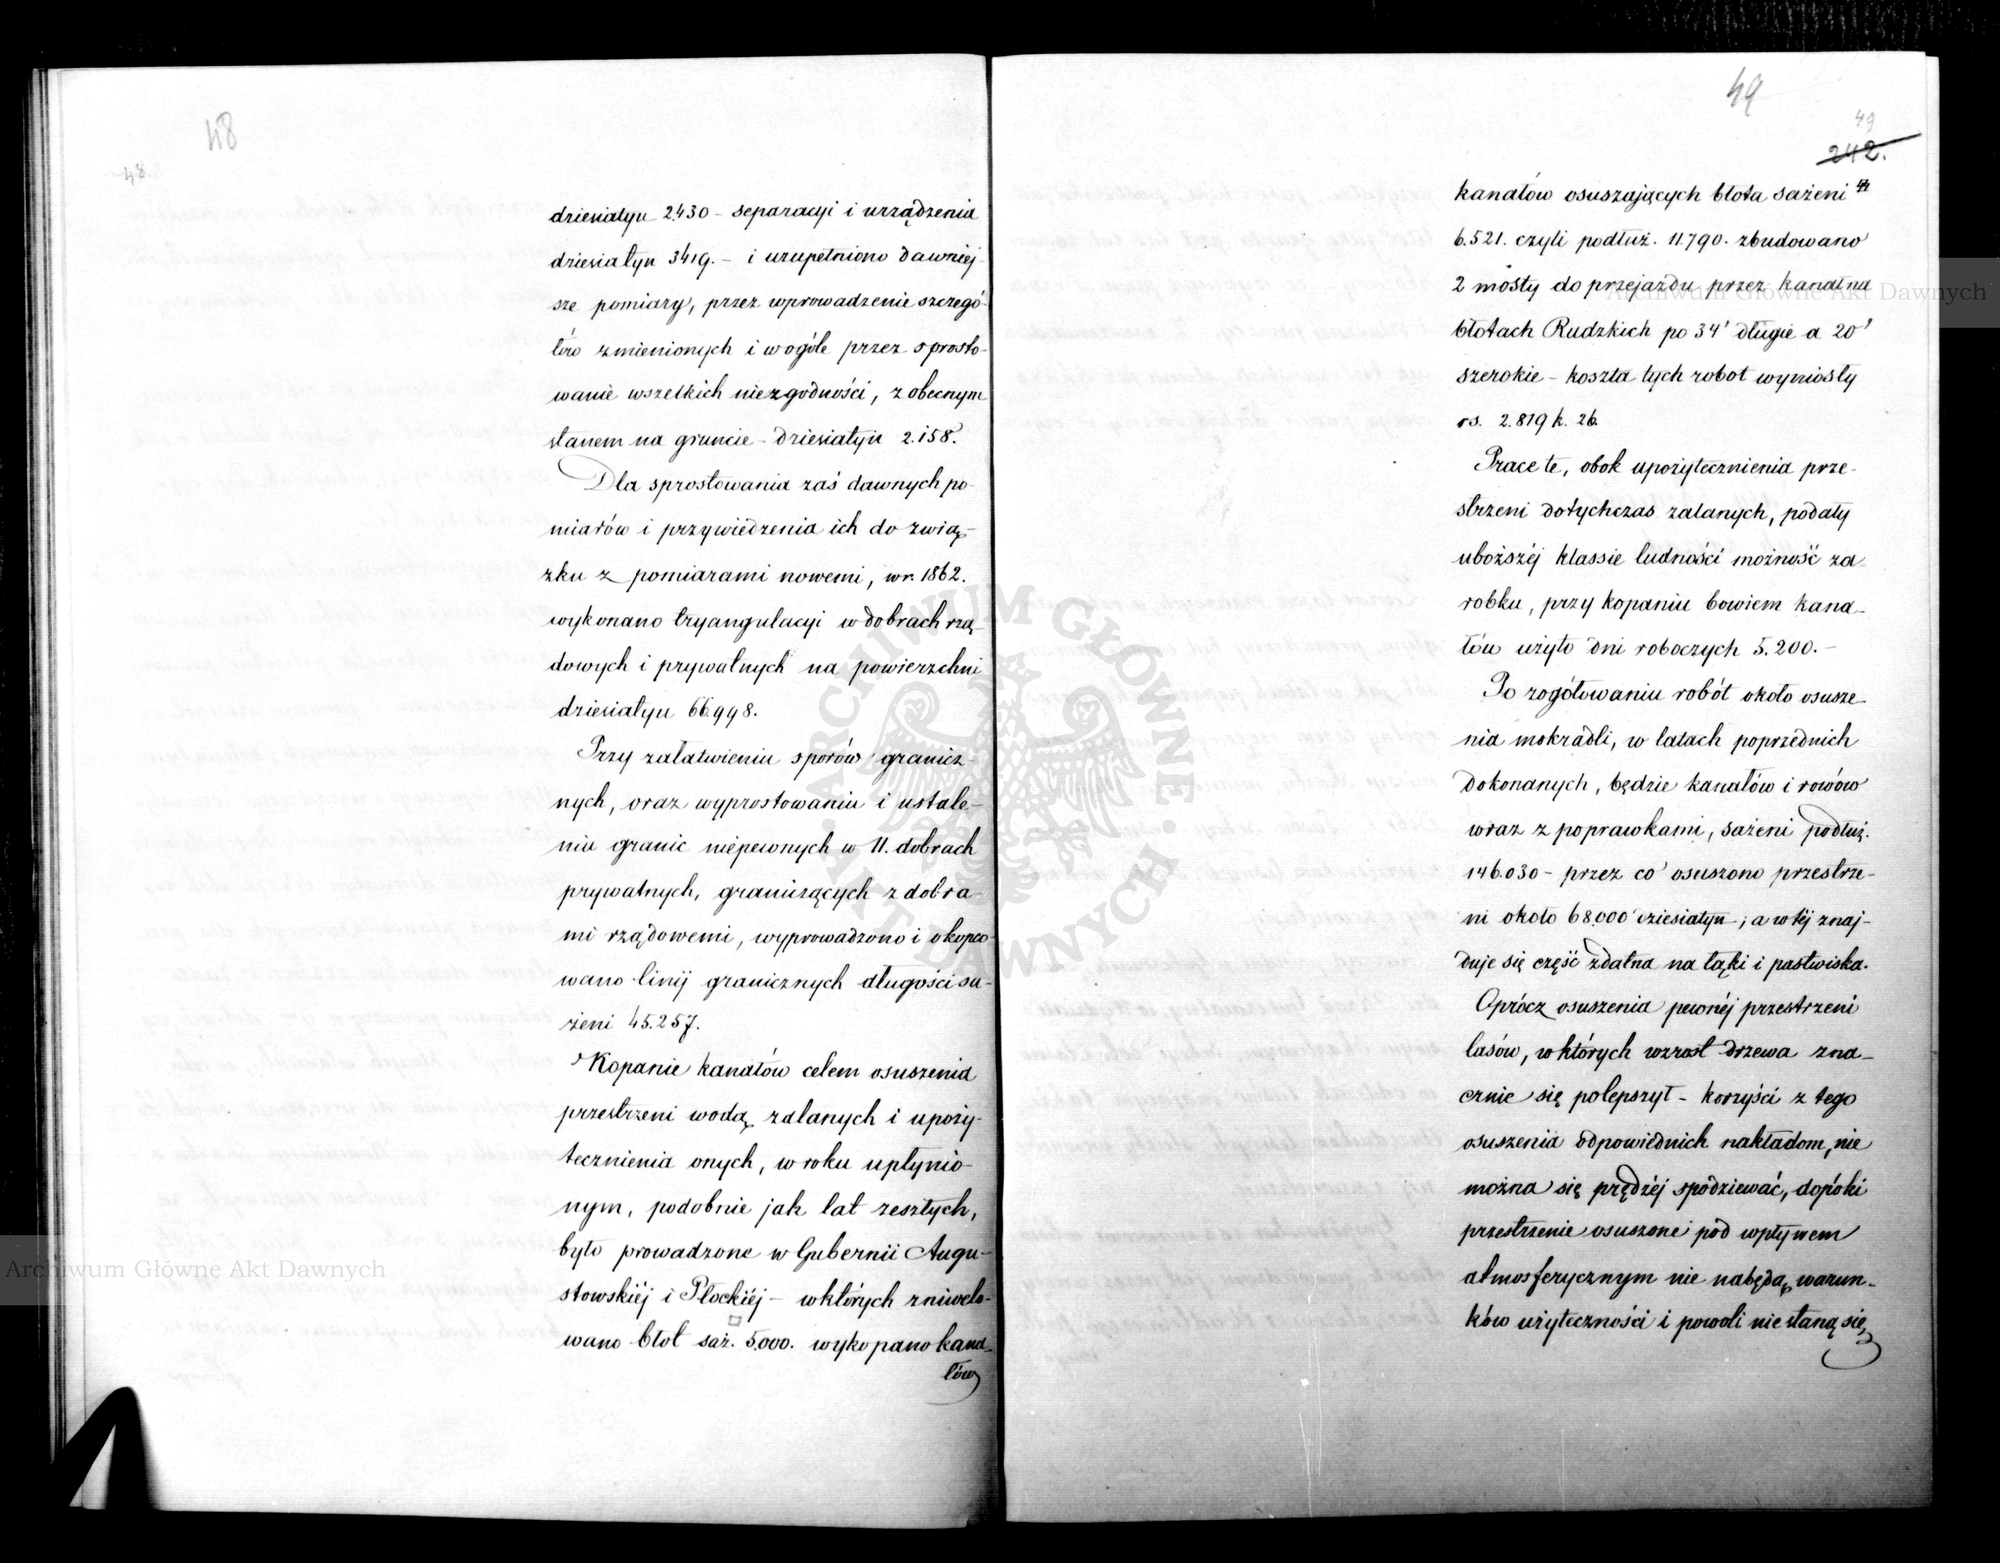 48
48
dziesiatyn 2.430 – separacyi i urządzenia
dziesiatyn 3419. – i uzupełniono dawniej-
sze pomiary, przez wprowadzenie szczegó-
łów zmienionych i wogóle przez sprosto-
wanie wszelkich niezgodności, z obecnym
stanem na gruncie – dziesiatyn 2.158.
Dla sprostowania zaś dawnych po-
miarów i przywiedzenia ich do zwią-
zku z pomiarami nowemi, w r. 1862.
wykonano tryangulacyi w dobrach rzą-
dowych i prywatnych na powierzchni
dziesiatyn 66.998.
Przy załatwieniu sporów granicz-
nych, oraz wyprostowaniu i ustale-
niu granic niepewnych w 11. dobrach
prywatnych, graniczących z dobra-
mi rządowemi, wyprowadzono i okopco-
wano linij granicznych długości sa-
żeni 45.257.
Kopanie kanałów celem osuszenia
przestrzeni wodą zalanych i upoży-
tecznienia onych, w roku upłynio-
nym, podobnie jak lat zeszłych,
było prowadzone w Gubernii Augu-
stowskiéj i Płockiéj – w których zniwelo-
wano błot saż. 5.000. wykopano kana-
łów
49
49
242.
kanałów osuszających błota sażeni
6.521. czyli podłuż. 11.790. zbudowano
2 mosty do przejazdu przez kanał na
błotach Rudzkich po 34' długie a 20'
szerokie – koszta tych robot wyniosły
rs. 2.819 k. 26.
Prace te, obok upożytecznienia prze-
strzeni dotychczas zalanych, podały
uboższéj klassie ludności możność za-
robku, przy kopaniu bowiem kana-
łów użyto dni roboczych 5.200. –
Po zogółowaniu robót około osusze-
nia mokradli, w latach poprzednich
dokonanych, będzie kanałów i rowów
wraz z poprawkami, sażeni podłuż.
146.030 – przez co osuszono przestrze-
ni około 68.000 dziesiatyn; a w téj znaj-
duje się część zdatna na łąki i pastwiska.
Oprócz osuszenia pewnéj przestrzeni
lasów, w których wzrost drzewa zna-
cznie się polepszył – korzyści z tego
osuszenia odpowiednich nakładom, nie
można się prędzéj spodziewać, dopóki
przestrzenie osuszone pod wpływem
atmosferycznym nie nabędą warun-
ków użyteczności i powoli nie staną się
Archiwum Główne Akt Dawnych
Archiwum Główne Akt Dawnych
ARCHIWUM GŁÓWNE • AKT DAWNYCH •